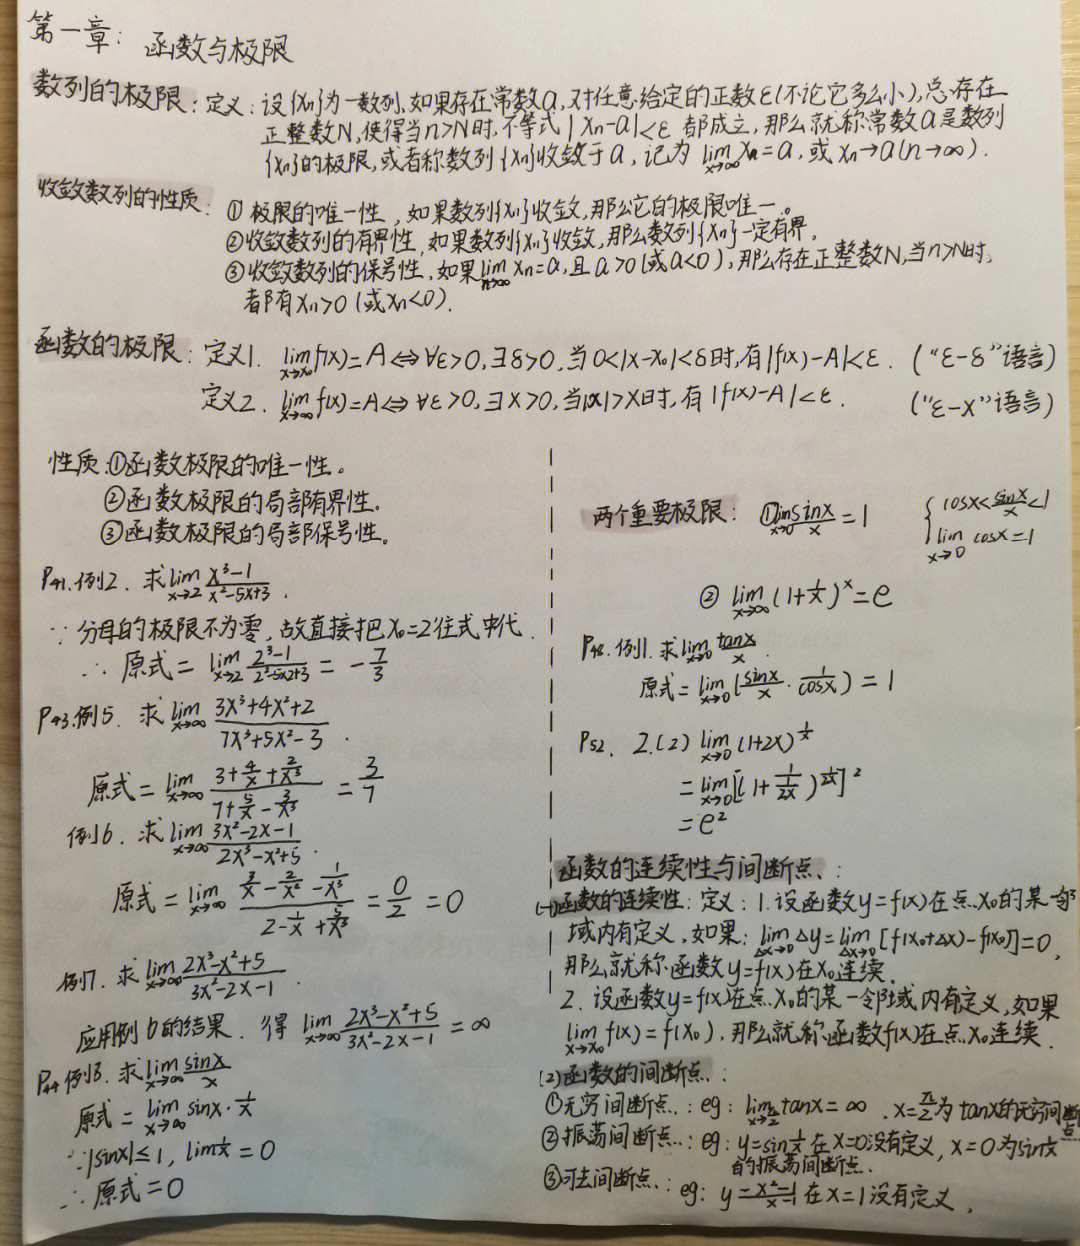 第一章：函数与极限
数列的极限：定义：设{Xn}为一数列,如果存在常数a,对任意给定的正数ε(不论它多么小),总存在
正整数N,使得当n>N时,不等式|Xn-a|<ε 都成立,那么就称常数a是数列
{Xn}的极限,或者称数列{Xn}收敛于a,记为 lim x→∞ Xn=a,或Xn→a(n→∞).
收敛数列的性质：①极限的唯一性,如果数列{Xn}收敛,那么它的极限唯一。
②收敛数列的有界性,如果数列{Xn}收敛,那么数列{Xn}一定有界。
③收敛数列的保号性,如果lim n→∞ Xn=a,且a>0(或a<0),那么存在正整数N,当n>N时,
都有Xn>0(或Xn<0).
函数的极限：定义1. lim x→x₀ f(x)=A⇔∀ε>0,∃δ>0,当0<|x-x₀|<δ时,有|f(x)-A|<ε. ("ε-δ"语言)
定义2. lim x→∞ f(x)=A⇔∀ε>0,∃X>0,当|x|>X时,有|f(x)-A|<ε. ("ε-X"语言)
性质:①函数极限的唯一性。
②函数极限的局部有界性。
③函数极限的局部保号性。
P41.例2. 求 lim x→2 (x³-1)/(x²-5x+3).
∵分母的极限不为零,故直接把x₀=2往式中代.
∴原式= lim x→2 (2³-1)/(2²-5x2+3) = -7/3
P43.例5. 求 lim x→∞ (3x³+4x²+2)/(7x³+5x²-3).
原式= lim x→∞ (3+4/x+2/x³)/(7+5/x-3/x³) = 3/7
例6. 求 lim x→∞ (3x²-2x-1)/(2x³-x²+5).
原式= lim x→∞ (3/x-2/x²-1/x³)/(2-1/x+5/x³) = 0/2 =0
例7. 求 lim x→∞ (2x³-x²+5)/(3x²-2x-1).
应用例6的结果. 得 lim x→∞ (2x³-x²+5)/(3x²-2x-1) =∞
P44例8. 求 lim x→∞ sinx/x
原式= lim x→∞ sinx·1/x
∵|sinx|≤1, lim 1/x =0
∴原式=0
两个重要极限：① lim x→0 sinx/x =1 { cosx<sinx/x<1
lim x→0 cosx=1
② lim x→∞ (1+1/x)^x=e
P48.例1.求 lim x→0 tanx/x.
原式= lim x→0 (sinx/x · 1/cosx) =1
P52. 2.(2) lim x→0 (1+2x)^(1/x)
= lim x→0 [(1+1/2x)^(1/2x)]²
=e²
函数的连续性与间断点：
(一)函数的连续性：定义：1.设函数y=f(x)在点x₀的某一邻
域内有定义,如果: lim Δx→0 Δy= lim Δx→0 [f(x₀+Δx)-f(x₀)]=0,
那么就称函数y=f(x)在x₀连续.
2. 设函数y=f(x)在点x₀的某一邻域内有定义,如果
lim x→x₀ f(x)=f(x₀),那么就称函数f(x)在点x₀连续.
(2)函数的间断点：
①无穷间断点：eg: lim x→π/2 tanx=∞ . x=π/2为tanx的无穷间断点
②振荡间断点：eg: y=sin1/x在x=0没有定义, x=0为sin1/x
的振荡间断点.
③可去间断点：eg: y=(x²-1)/(x-1) 在x=1没有定义,